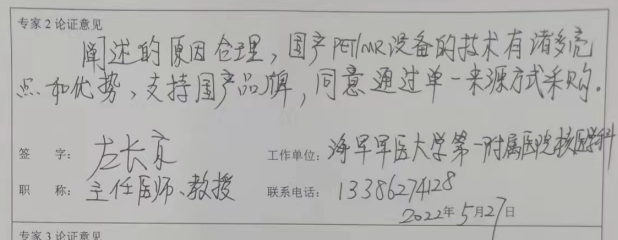 专家2论证意见
阐述的原因合理，国产PET/MR设备的技术有诸多亮
点和优势，支持国产品牌，同意通过单一来源方式采购。
签 字：左长京 工作单位：海军军医大学第一附属医院核医学科
职 称：主任医师、教授 联系电话：13386274128
2022年5月27日
专家3论证意见